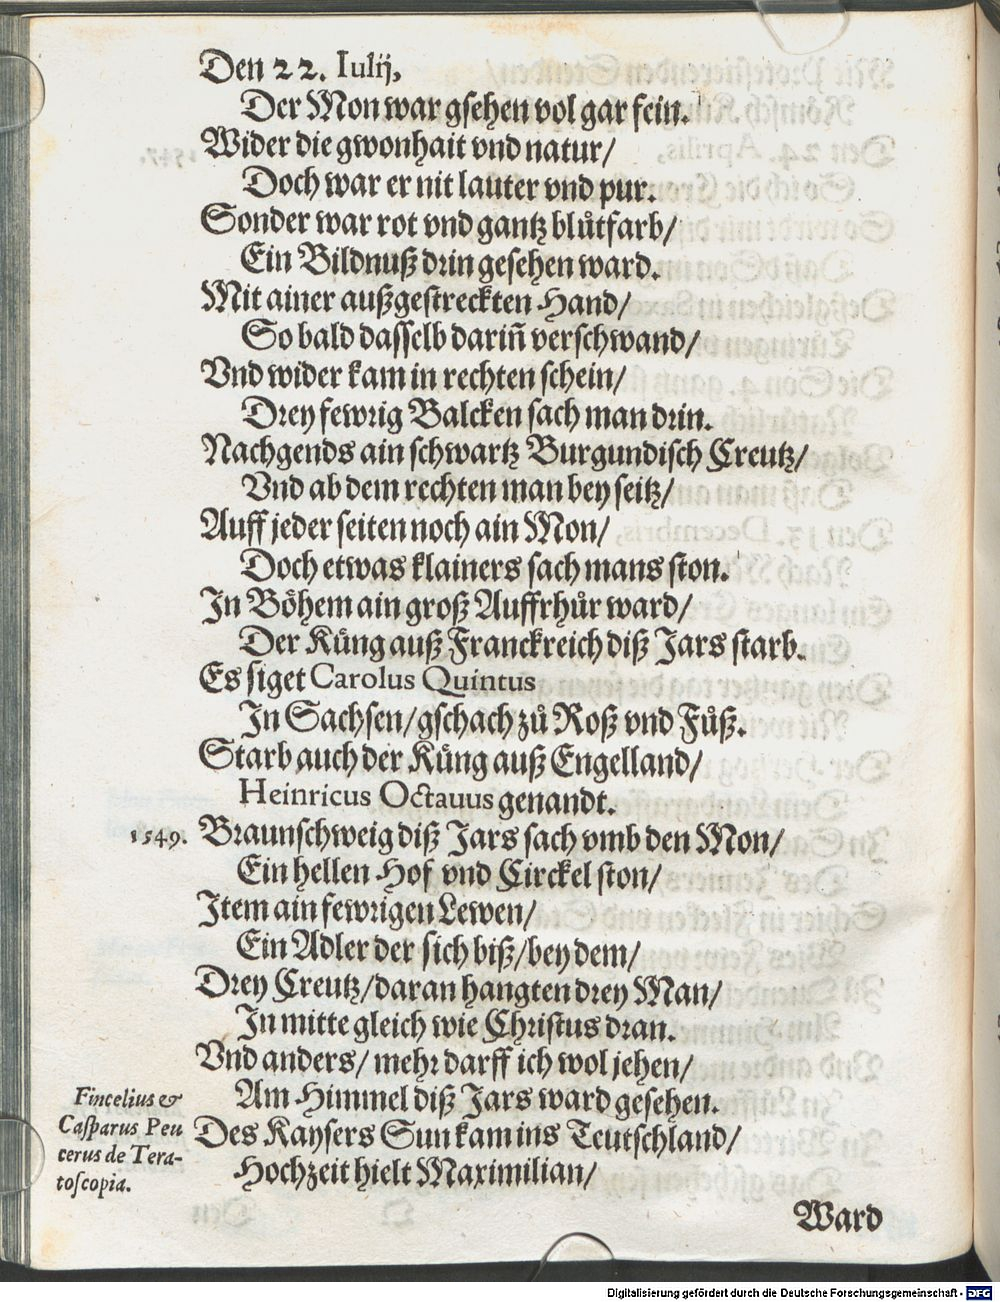 Den 22. Iulij,
Der Mon war gsehen vol gar fein.
Wider die gwonhait vnd natur/
Doch war er nit lauter vnd pur.
Sonder war rot vnd gantz blůtfarb/
Ein Bildnuß drin gesehen ward.
Mit ainer außgestreckten Hand/
So bald dasselb dariñ verschwand/
Vnd wider kam in rechten schein/
Drey fewrig Balcken sach man drin.
Nachgends ain schwartz Burgundisch Creutz/
Vnd ab dem rechten man bey seitz/
Auff jeder seiten noch ain Mon/
Doch etwas klainers sach mans ston.
In Böhem ain groß Auffrhůr ward/
Der Küng auß Franckreich diß Jars starb.
Es siget Carolus Quintus
In Sachsen/gschach zů Roß vnd Fůß.
Starb auch der Küng auß Engelland/
Heinricus Octauus genandt.
1549. Braunschweig diß Jars sach vmb den Mon/
Ein hellen Hof vnd Circkel ston/
Item ain fewrigen Lewen/
Ein Adler der sich biß/bey dem/
Drey Creutz/daran hangten drey Man/
In mitte gleich wie Christus dran.
Vnd anders/ mehr darff ich wol jehen/
Am Himmel diß Jars ward gesehen.
Des Kaysers Sun kam ins Teutschland/
Hochzeit hielt Maximilian/
Fincelius &
Casparus Peu
cerus de Tera-
toscopia.
Ward
Digitalisierung gefördert durch die Deutsche Forschungsgemeinschaft - DFG